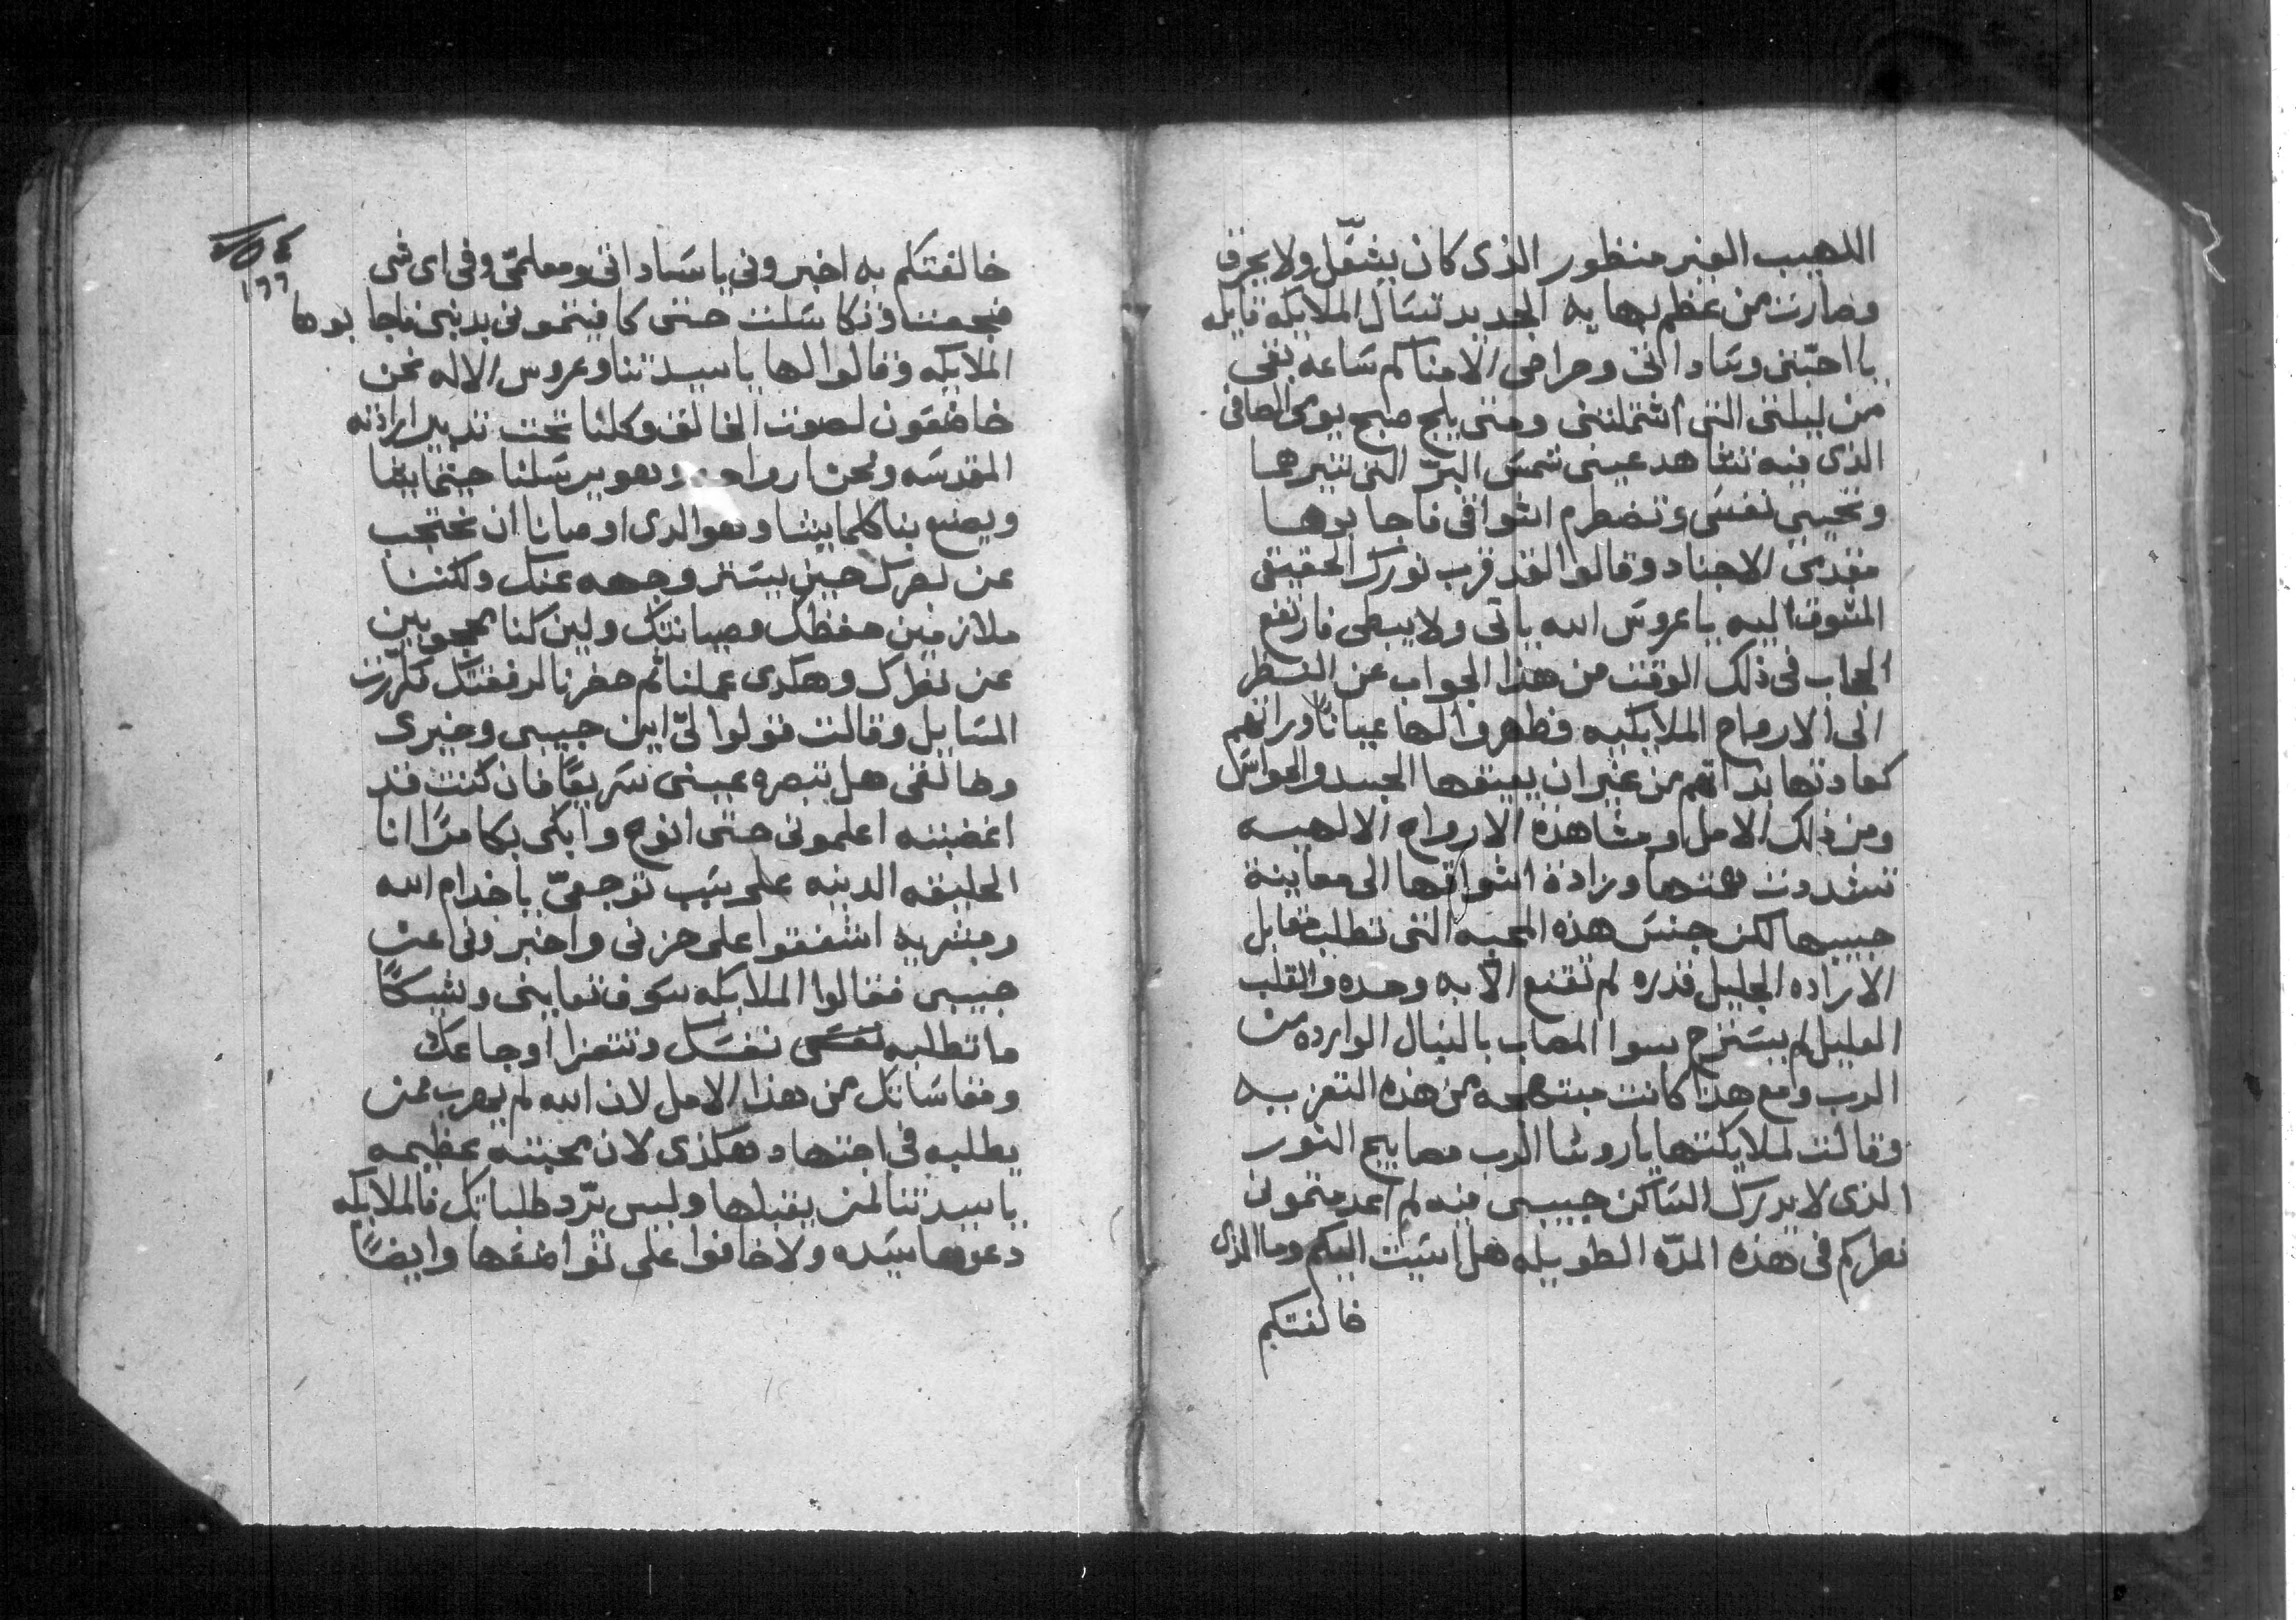 اللهيب الغير منظور الذى كان يشعّل ولا يحرق
وصارت من عظم بهايه الجديد تسَال الملايكه قايله
يا احبّتى وسَاداتى وحراصى الامنا كم سَاعه بقى
من ليلتى التى اشتملتنى ومتى يلج صبح يومى الصافى
الذى فيه تشاهد عينى شمسَ البرّ التى تنيرها
وتحيى نفسَى وتضطرم اشواقى فاجابوها
مقدمى الاجناد وقالوا لقد قرب نورك الحقيقى
المتشوقه اليه يا عروسَ الله ياتى ولا يبطى فارتفع
الحجاب فى ذلك الوقت من هذا الجواب عن النظر
الى الارواح الملايكيه فظهروا لها عيانًا وراتهم
كعادتها بذاتهم من غير ان يعيقها الجسد والحواسَ
ومن ذلك الامل ومشاهدة الارواح الالهيه
تشددت همتها وزادة اشواقها الى معاينة
حبيبها لكن جنسَ هذه المحبه التى تطلب مقابل
الاراده الجليل قدره لم تقنع الّا به وحده والقلب
العليل لم يستَرح سوا المصاب بالنبال الوارده من
الرب ومع هذا كانت مبتهجه من هذه التعزيه
وقالت لملايكتها يا روسَا الرب مصابيح النور
الذى لا يدرك السَاكن حبيبى فيه لم اعدمتمونى
نظركم فى هذه المدّه الطويله هل اسَيت اليكم وما الذى
خالفتكم
١٥٤
١٦٦
خالفتكم به اخبرونى يا سَاداتى ومعلمىّ وفى اى شى
فجعت او تكاسَلت حتى كافيتمونى بدنبى فاجابوها
الملايكه وقالوا لها يا سيدتنا وعروس الاله نحن
خاضعون لصوت الخالق وكلنا تحت تدبير ارادته
المقدسَه ونحن ارواحه وهو يرسَلنا حيثما يشا
ويصنع بنا كلما يشا وهو الدى اوصانا ان نحتجب
عن نظرك حين يسَتر وجهه عنك ولكننا
ملازمين حفظك وصيانتك ولين كنا محجوبين
عن نظرك وهكدى عملنا ثم حضرنا لرفقتك فكرّرت
المسَايل وقالت قولوا لىّ اين حبيبى وخيرى
وخالقى هل تبصره عينى سَريعًا فان كنت قد
اغضبته اعلمونى حتى انوح وابكى بكا مرًا انا
الخليقه الدنيه على سَبب توجعىّ يا خدام الله
ومبشريه اشفقوا على حزنى واخبرونى عن
حبيبى فقالوا الملايكه سَوف تعاينى وشيكًا
ما تطلبه نفسَى نفسَك وتتعزا اوجاعك
ومقاسَاتك من هذا الامل لان الله لم يهرب ممن
يطلبه فى اجتهاد هكذى لان محبته عظيمه
يا سيدتنا لمن يقبلها وليس يردّ طلباتك فالملايكه
دعوها سيَده ولا خافوا على تواضعها وايضًا